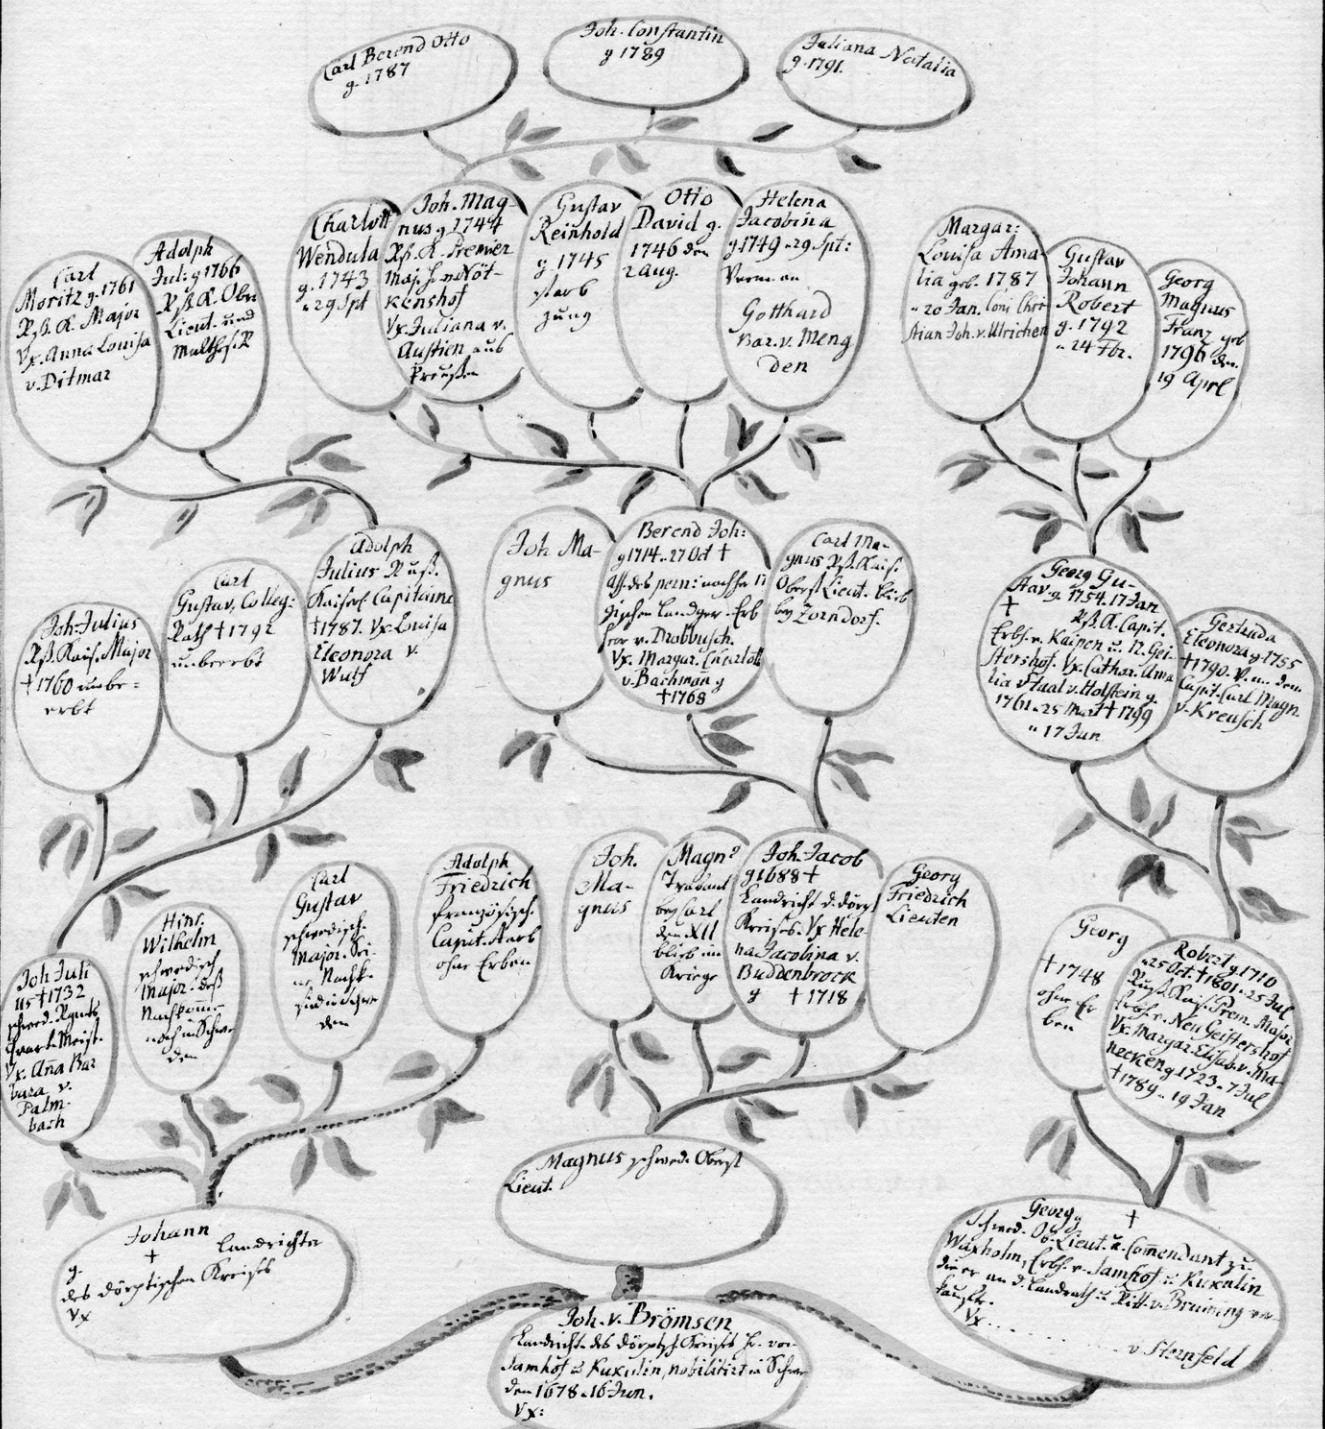 Carl Berend Otto
g. 1787
Joh. Constantin
g 1789
Juliana Natalia
g. 1791.
Carl
Moritz g. 1761
Rß. K. Major
Vx. Anna Louisa
v. Ditmar
Adolph
Jul: g 1766
Rß. K. Obr
Lieut. und
Malthes. R
Wendula
g. 1743
29 Spt
Joh. Mag-
nus g 1744
Rß. K. Premier
Maj. H. v. Nöt-
kenshof
Vx. Juliana v.
Austien aus
Preußen
Gustav
Reinhold
g. 1745
starb
jung
Otto
David g.
1746 den
2 Aug.
Helena
Jacobina
g 1749 . 29 Spt:
Verm. an
Gotthard
Bar. v. Meng
den
Margar:
Louisa Ama-
lia geb. 1787
20 Jan. Coni Chri
stian Joh. v. Ulrichen
Gustav
Johann
Robert
g. 1792
24 Fbr.
Georg
Magnus
Franz geb
1796 den
19 Aprl
Joh: Julius
Rß. Kais. Major
† 1760 unbe=
erbt
Carl
Gustav, Colleg:
Rath † 1792
unbeerbt
Adolph
Julius Ruß.
Kaiserl Capitaine
† 1787. Vx. Louisa
Eleonora v.
Wulf
Joh Ma-
gnus
Berend Joh:
g 1714 . 27 Oct †
Aß. des pern:
gischen Landger. Erb
herr v. Drobbusch.
Vx. Margar. Charlott
v. Bachmann g
† 1768
Carl Ma-
gnus Rß. Kais.
Oberst Lieut. blieb
bey Zorndorf.
Georg Gu-
stav g. 1754. 17 Jan
† Rß. K. Capit.
Erbh. v. Kaipen u. N. Gei-
stershof. Vx. Cathar. Ama
lia v Staal v. Holstein g.
1761 . 25 Mart † 1799
17 Jun
Gerlinda
Eleonora g. 1755
† 1790. V. m. dem
Capit. Carl Magn.
v. Kreusch
Joh Juli
us † 1732
schwed. Rgmts
Quart. Meist.
Vx. Aña Bar
bara v.
Palm-
bach
Hinr.
Wilhelm
schwedisch
Major. deß
Nachkomme
noch in Schwe
den
Carl
Gustav
schwedisch.
Major. Sei-
ne Nachk.
sind in Schwe
den
Adolph
Friedrich
französisch.
Capit. starb
ohne Erben
Joh.
Ma-
gnus
Magns
Trabant
bey Carl
dem XII
blieb im
Kriege
Joh. Jacob
g 1688 †
Landricht d. dörp
Kreises. Vx Hele-
na Jacobina v.
Buddenbrock
g † 1718
Georg
Friedrich
Lieuten
Georg
† 1748
ohne Er
ben
Robert g. 1710
25 Oct. † 1801 . 25 Jul
Ruß. Kais. Prem. Major
Erbh. v. Neu Geistershof
Vx. Margar. Elisab. v. Ma-
necken g. 1723 . 7 Jul
† 1789 . 19 Jan
Johann
g. † Landrichter
des dörptischen Kreises
Vx
Magnus schwed. Oberst
Lieut.
Georg g †
Schwed. Ob. Lieut. u. Comendant zu
Waxholm, Erbh. v. Jamhof u Kuxulin
die er an d. Landrath u. Ritt. v. Bruining ver-
kaufte.
Vx . . . . . . . . v Sternfeld
Joh. v. Brömsen
Landricht. des Dörptsch Kreises H. von
Jamhof u Kuxulin, nobilitirt in Schwe
den 1678 . 16 Jun.
Vx: